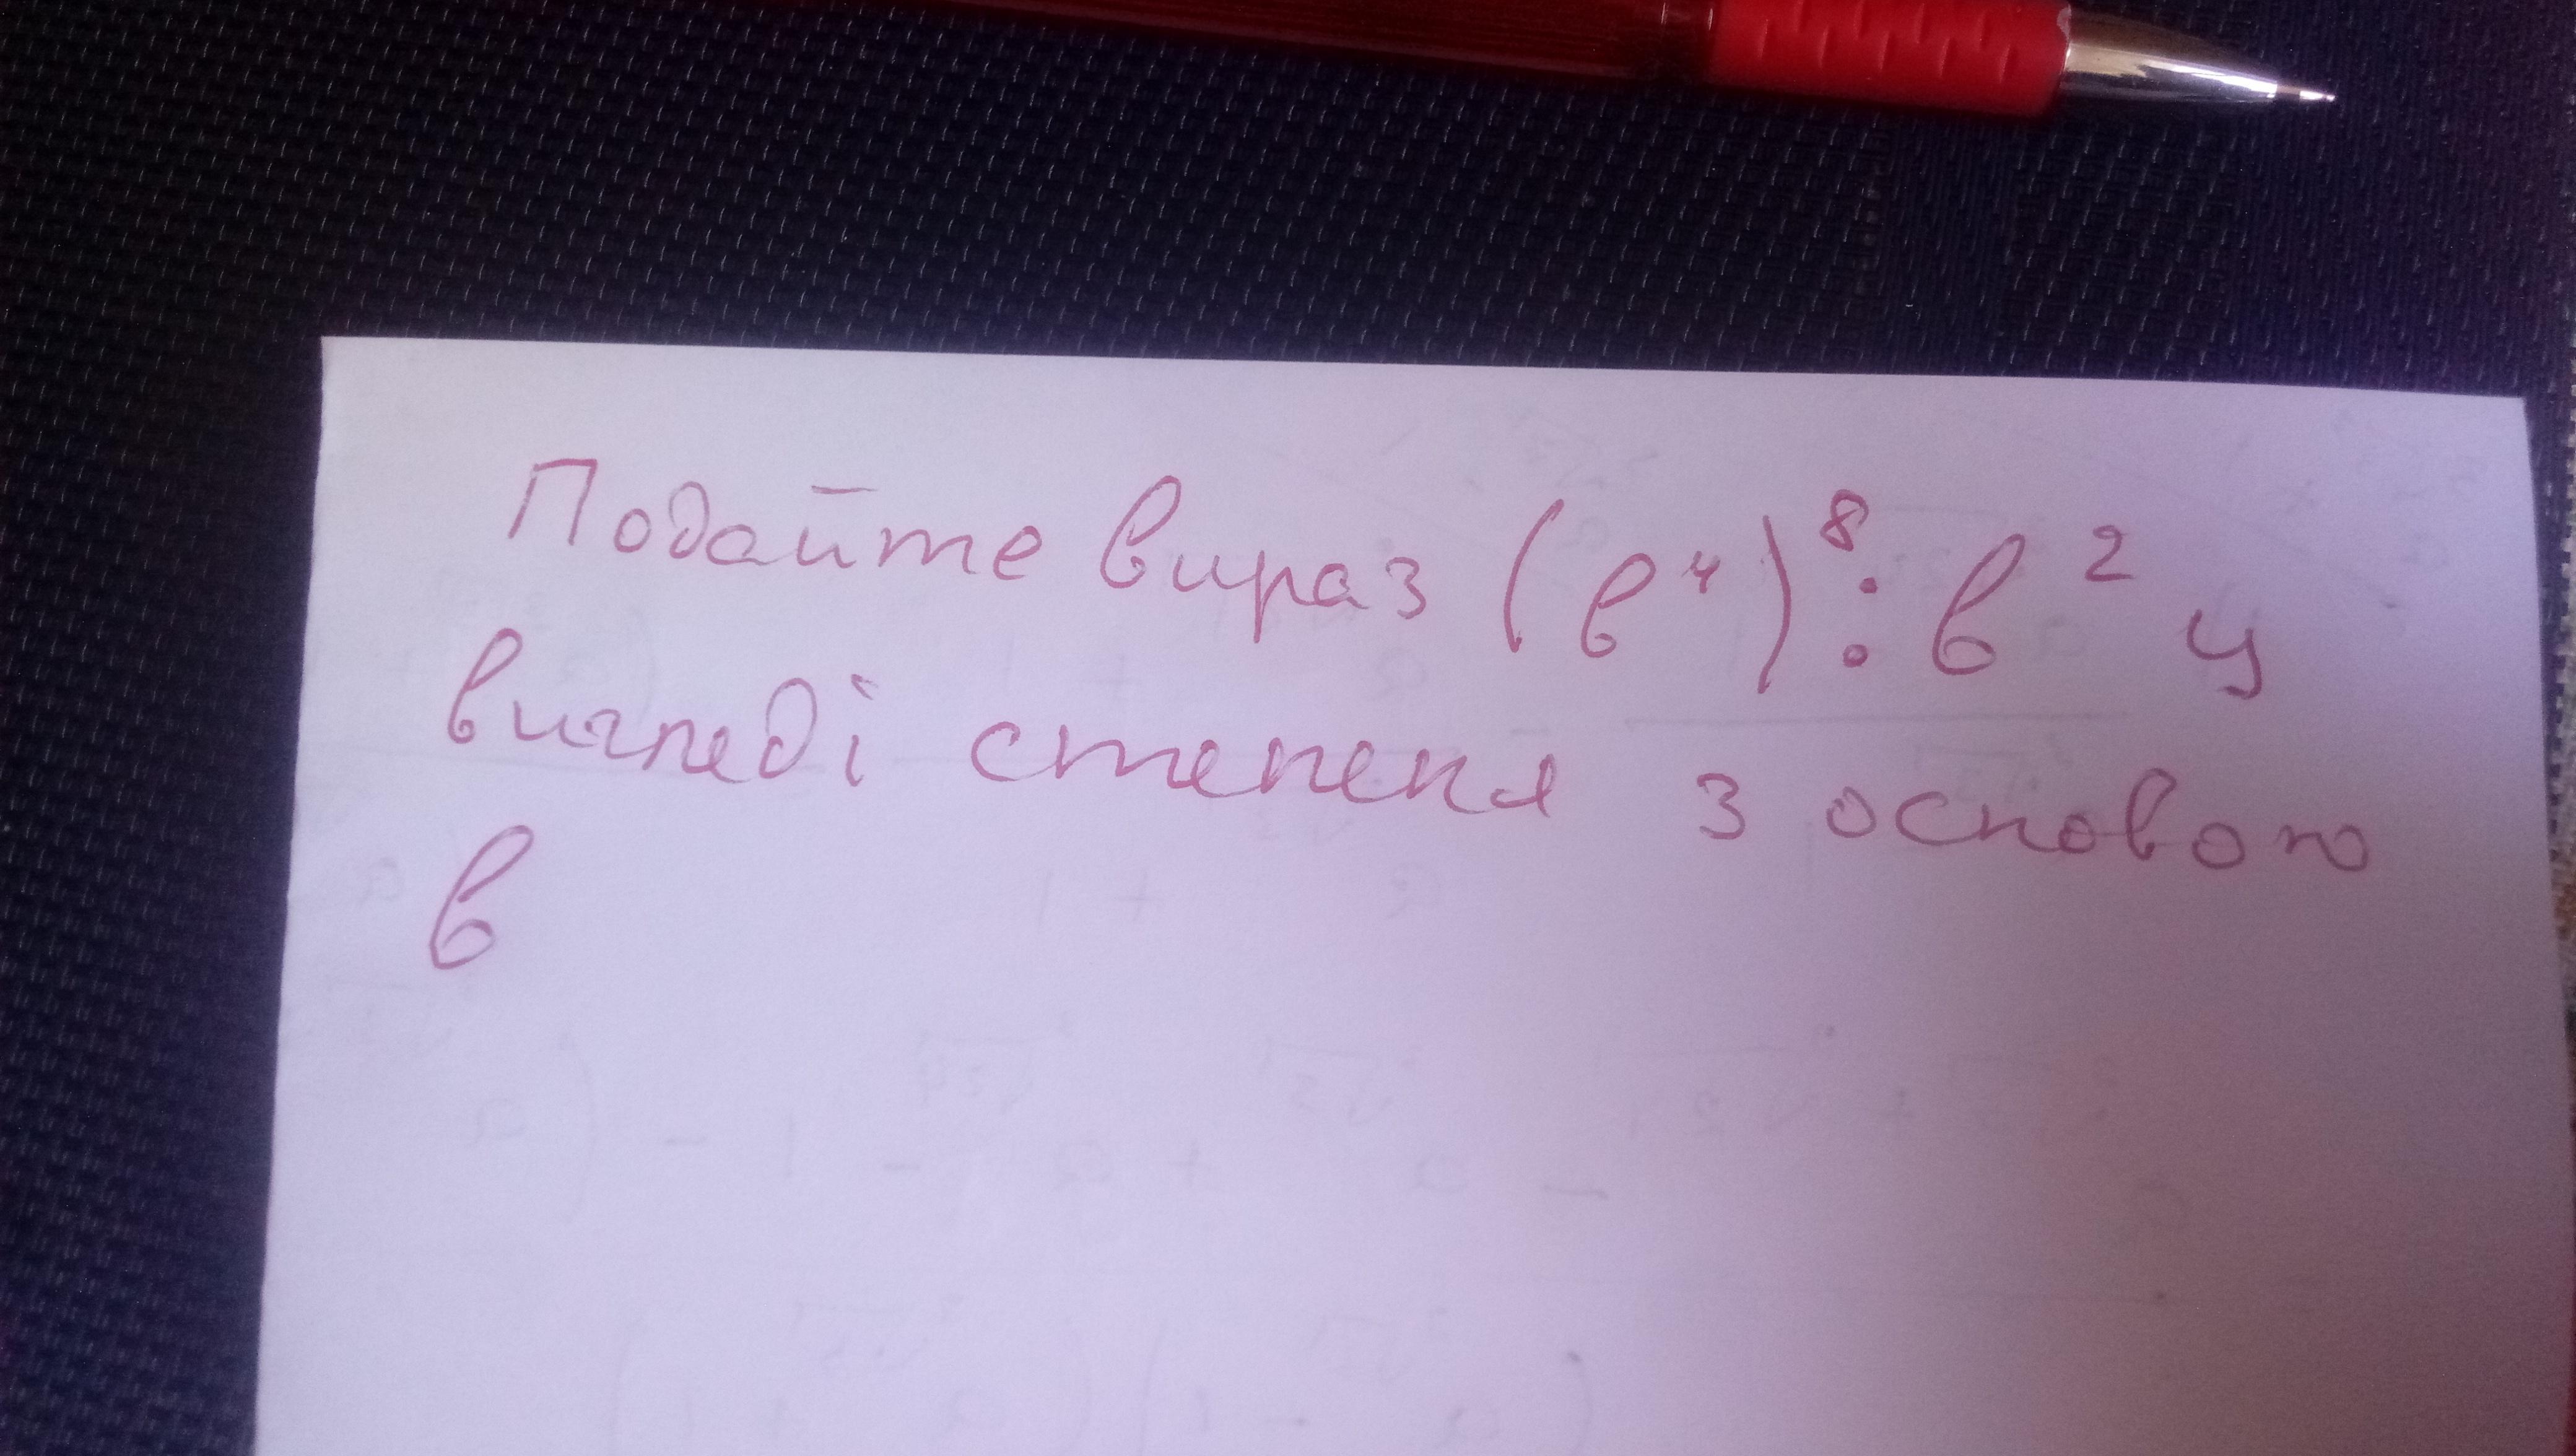 Подайте вираз (в⁴)⁸ : в² у
вигледі степеня з основою
в